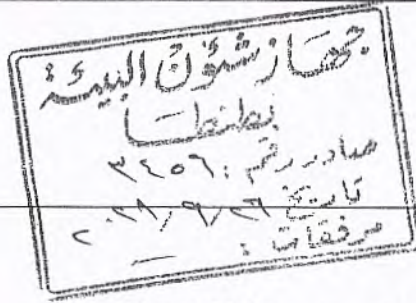 جهاز شئون البيئة
بطنطا
صادر رقم : ٣٤٥٦
تاريخ ٢٦ / ٩ /
مرفقات :